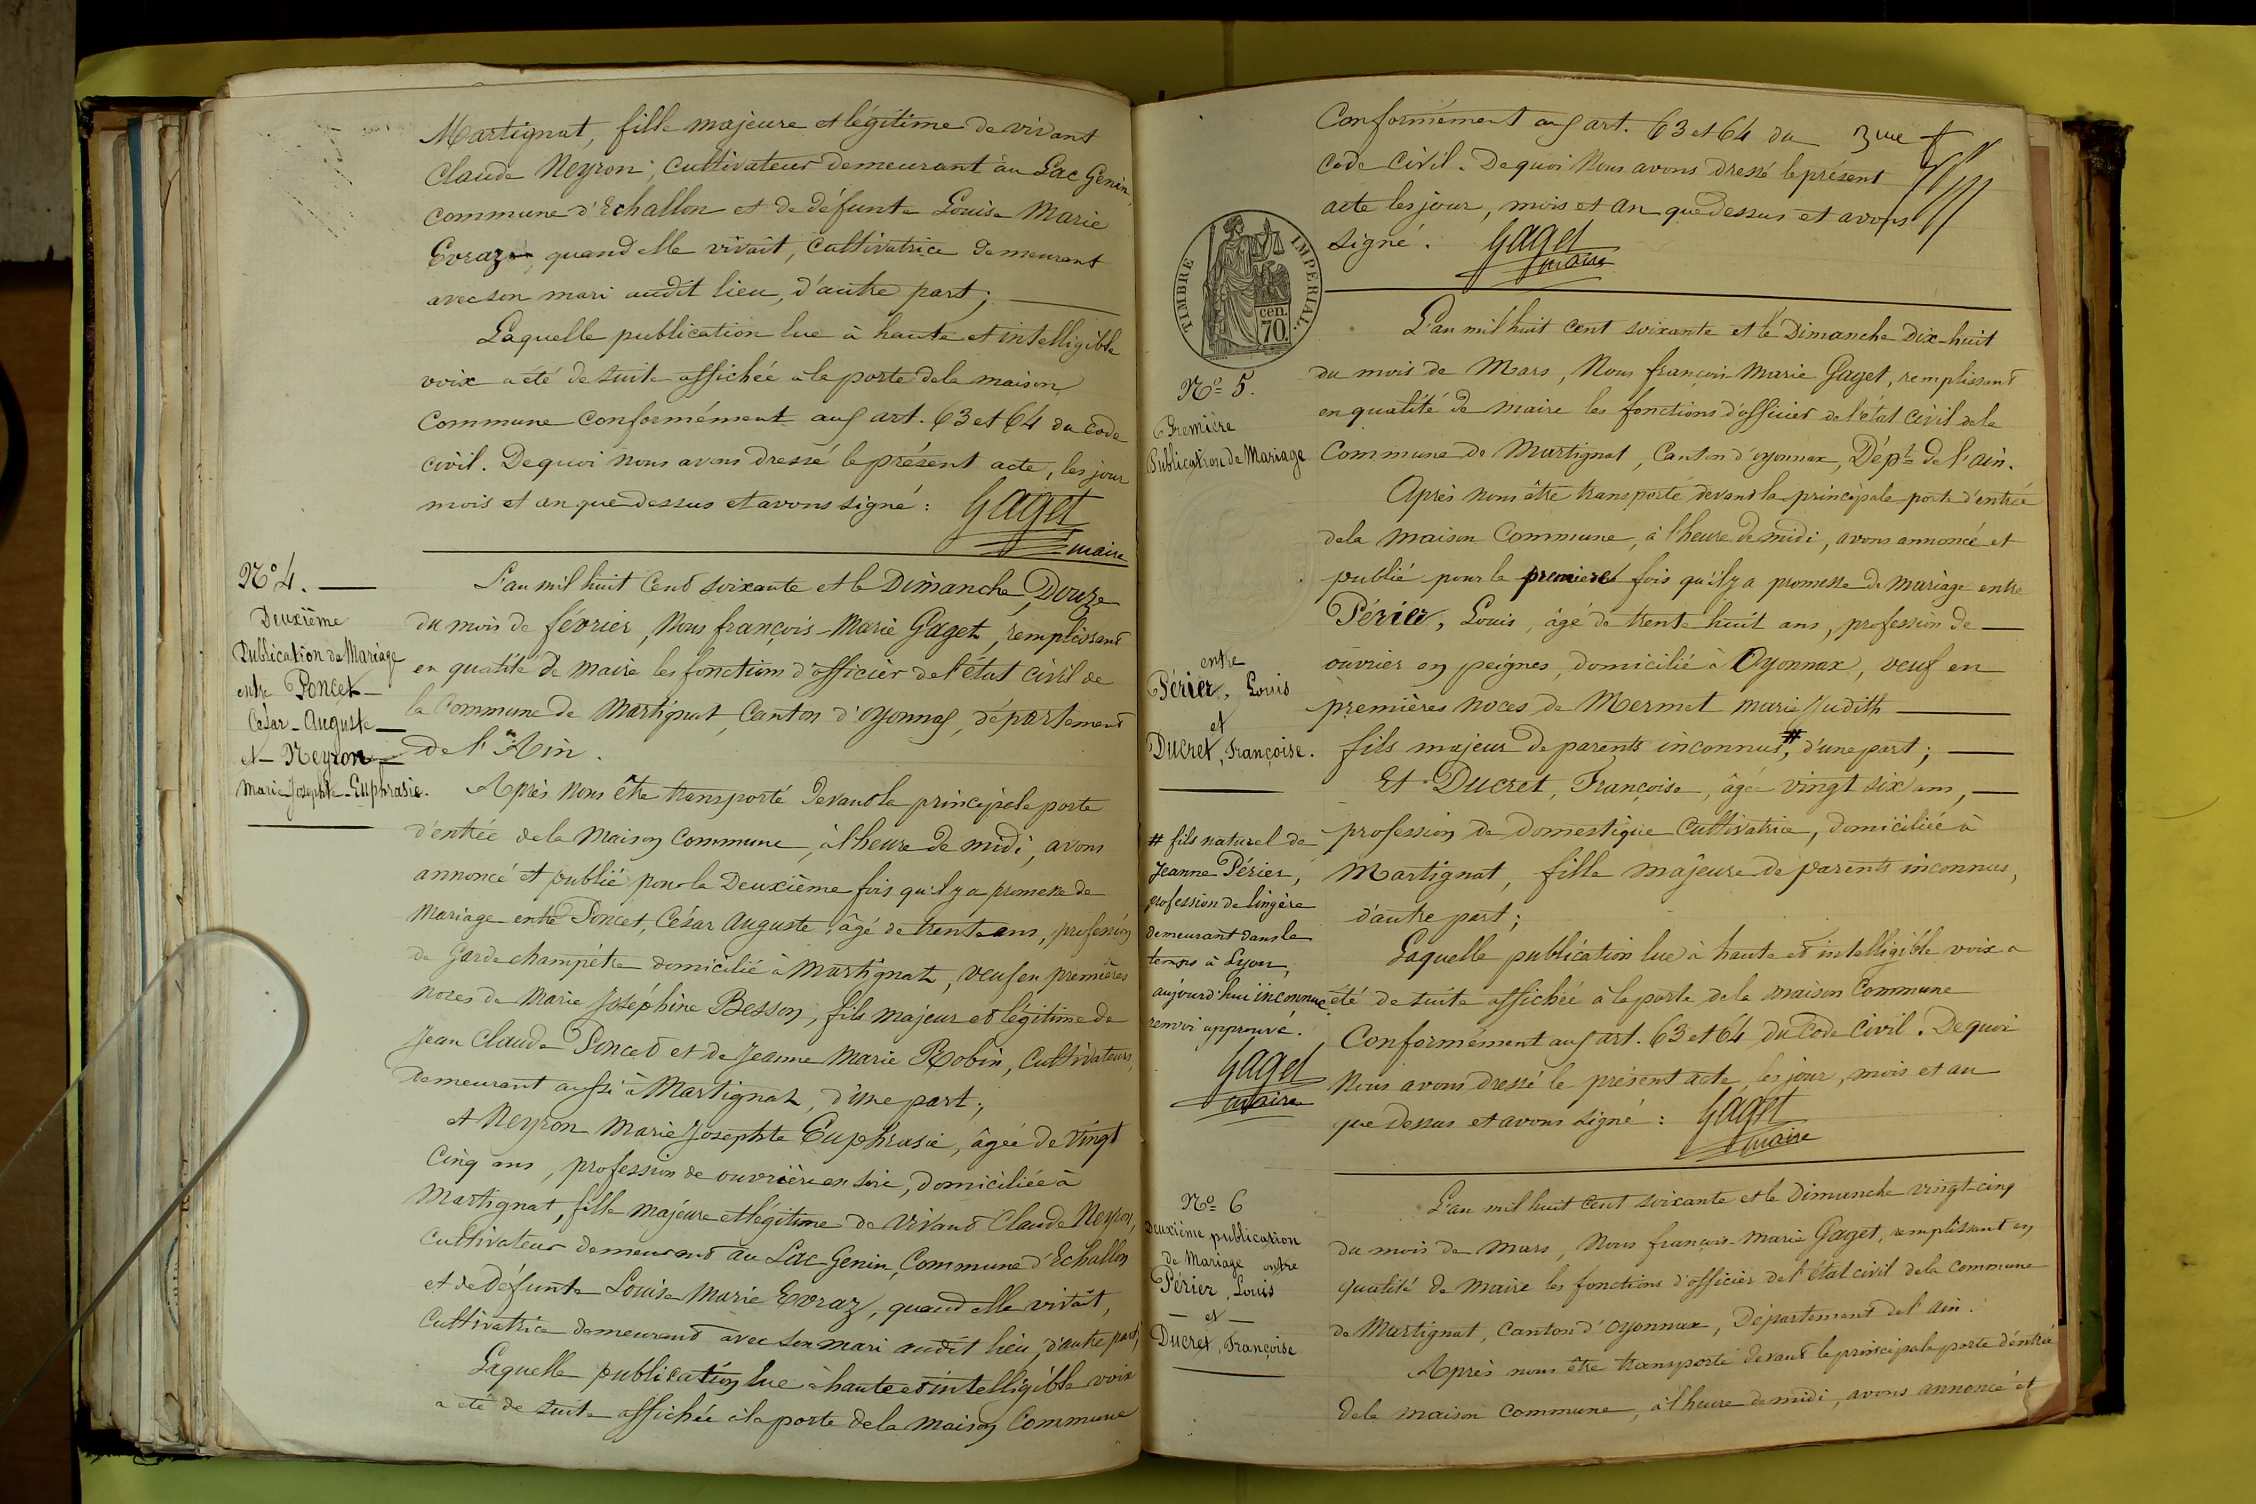 Martignat, fille majeure et légitime de vivant
Claude Neyron, cultivateur demeurant au Lac Genin,
commune d'Echallon et de défunte Louise Marie
Evraz, quand elle vivait, cultivatrice demeurant
avec son mari audit lieu, d'autre part;
Laquelle publication lue à haute et intelligible
voix a été de suite affichée à la porte de la maison
commune conformément aux art. 63 et 64 du Code
civil. De quoi nous avons dressé le présent acte, les jour
mois et an que dessus et avons signé :
Gaget
maire
N° 4.
Deuxième
Publication de Mariage
entre Poncet
César-Auguste
et Neyron
Marie Josephte Euphrasie.
L'an mil huit cent soixante et le Dimanche Douze
du mois de février, Nous françois-Marie Gaget, remplissant
en qualité de maire les fonctions d'officier de l'état civil de
la Commune de Martignat, Canton d'Oyonnax, département
de l'Ain.
Après nous être transporté devant la principale porte
d'entrée de la Maison Commune, à l'heure de midi, avons
annoncé et publié pour la Deuxième fois qu'il y a promesse de
Mariage entre Poncet, César Auguste, âgé de trente ans, profession
de Garde champêtre domicilié à Martignat, veuf en premières
noces de Marie Joséphine Besson, fils majeur et légitime de
Jean Claude Poncet et de Jeanne Marie Robin, Cultivateurs,
demeurant aussi à Martignat, d'une part;
et Neyron Marie Josephte Euphrasie, âgée de vingt
cinq ans, profession de ouvrière en soie, domiciliée à
Martignat, fille majeure et légitime de vivant Claude Neyron,
Cultivateur demeurant au Lac Genin, Commune d'Echallon
et de défunte Louise Marie Evraz, quand elle vivait,
Cultivatrice demeurant avec son mari audit lieu, d'autre part,
Laquelle publication lue à haute et intelligible voix
a été de suite affichée à la porte de la Maison Commune
Conformément aux art. 63 et 64 du 3me f
Code Civil. De quoi Nous avons dressé le présent
acte les jour, mois et an que dessus et avons
signé.
Gaget
maire
TIMBRE IMPERIAL.
cen.
70.
N° 5.
Première
Publication de Mariage
entre
Périer, Louis
et
Ducret, Françoise.
L'an mil huit cent soixante et le Dimanche Dix-huit
du mois de Mars, Nous françois-Marie Gaget, remplissant
en qualité de maire les fonctions d'officier de l'état civil de la
Commune de Martignat, Canton d'oyonnax, Dépt de l'ain.
Après nous être transporté devant la principale porte d'entrée
de la maison Commune, à l'heure de midi, avons annoncé et
publié pour la première fois qu'il y a promesse de mariage entre
Périer, Louis, âgé de trente huit ans, profession de
ouvrier en peignes, domicilié à Oyonnax, veuf en
premières noces de Mermet Marie Judith
fils majeur de parents inconnus, # d'une part;
Et Ducret, Françoise, âgée vingt six ans,
profession de domestique cultivatrice, domiciliée à
Martignat, fille majeure de parents inconnus,
d'autre part;
Laquelle publication lue à haute et intelligible voix a
été de suite affichée à la porte de la maison Commune
Conformément aux art. 63 et 64 du Code Civil. De quoi
Nous avons dressé le présent acte, les jour, mois et an
que dessus et avons signé :
Gaget
maire
# fils naturel de
Jeanne Périer,
profession de lingère
demeurant dans le
temps à Lyon,
aujourd'hui inconnue
renvoi approuvé.
Gaget
maire
N° 6
Deuxième publication
de Mariage entre
Périer, Louis
et
Ducret, Françoise
L'an mil huit cent soixante et le Dimanche vingt-cinq
du mois de Mars, Nous françois-Marie Gaget, remplissant en
qualité de Maire les fonctions d'officier de l'état civil de la commune
de Martignat, Canton d'oyonnax, Département de l'ain.
Après nous être transporté devant la principale porte d'entrée
de la maison Commune, à l'heure de midi, avons annoncé et